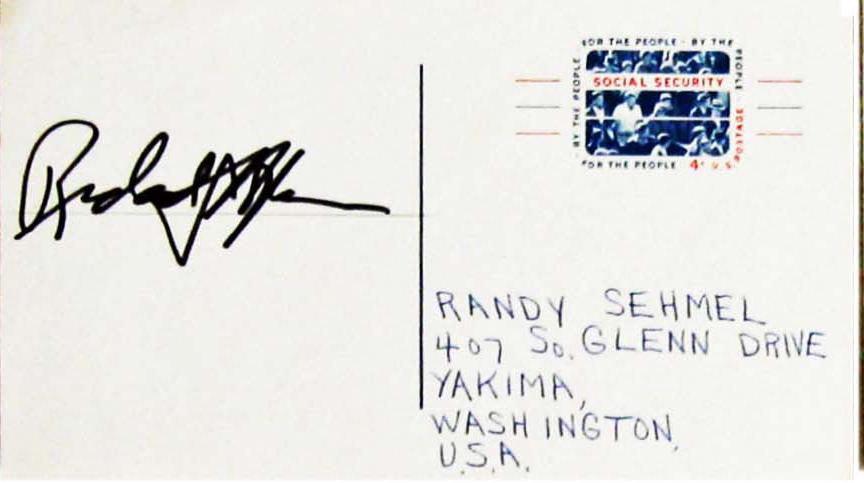 FOR THE PEOPLE · BY THE PEOPLE
· BY THE PEOPLE
SOCIAL SECURITY
FOR THE PEOPLE 4¢ U.S. POSTAGE
RANDY SEHMEL
407 So. GLENN DRIVE
YAKIMA,
WASHINGTON,
U.S.A.